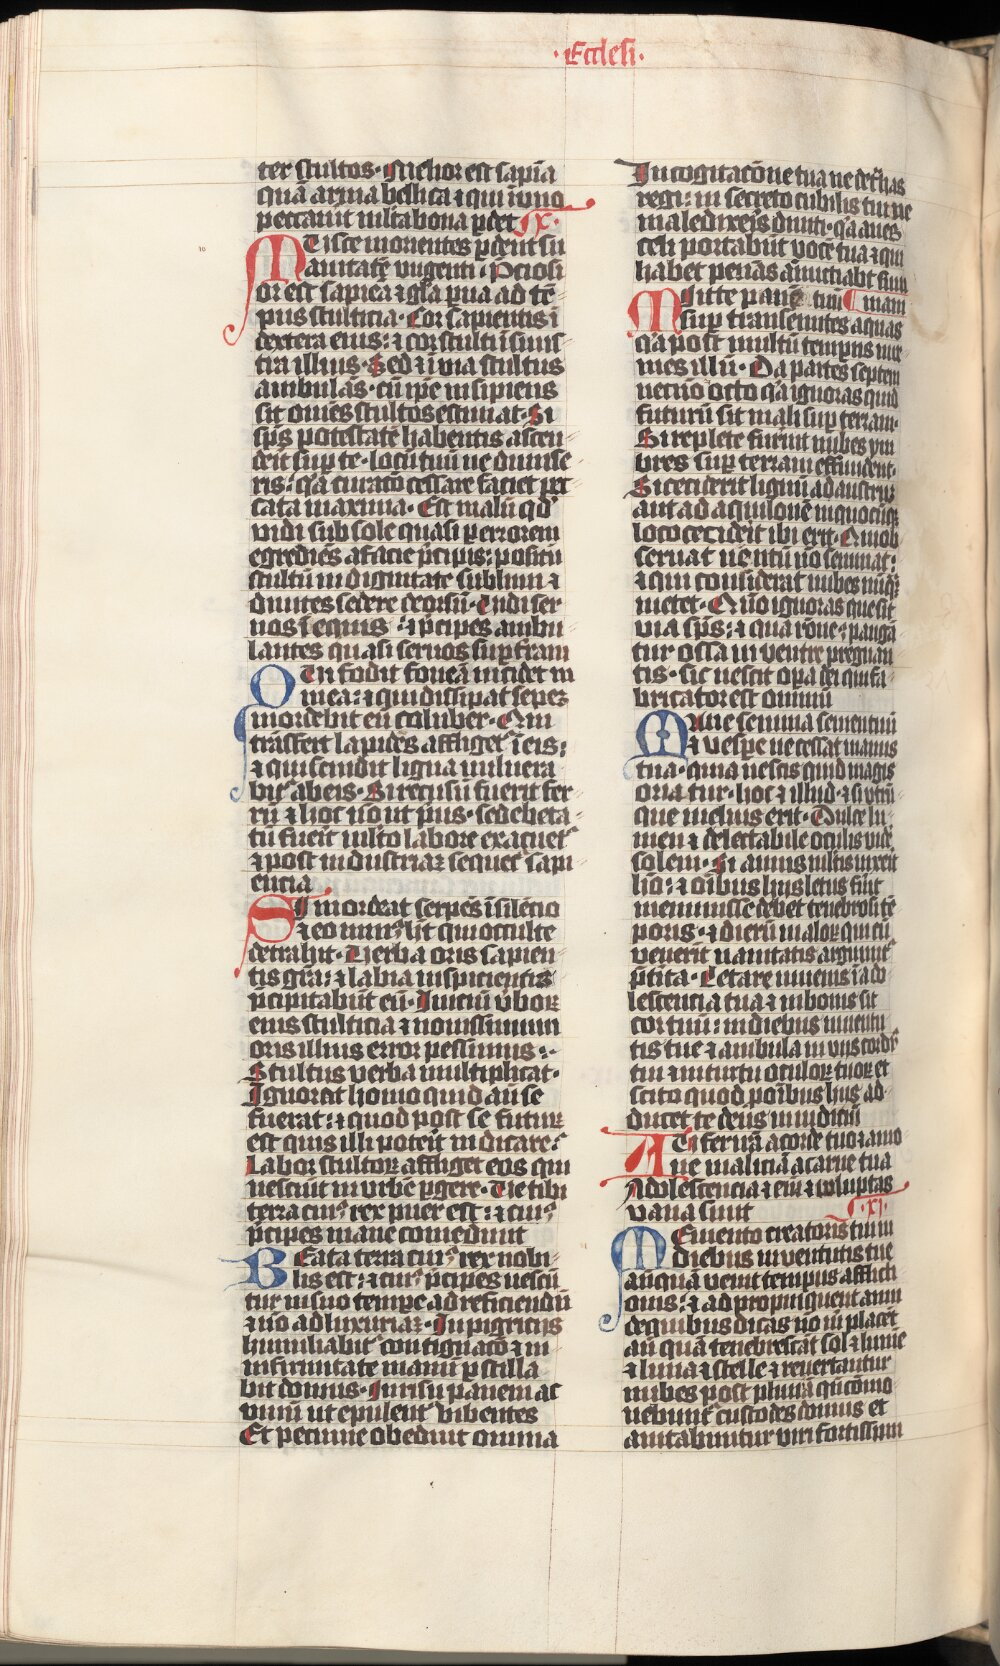 ·Eccle͞s·
ter stultos· Melior est sapīa
quā arma bellica ⁊ qui ī uno
peccauit m̄lta bona p̱det ·x·
MUsce morientes p̱dūt su
auitatē vngenti · Pciosi
or est sapīea ⁊ gl̄a pua ad tē
pus stulticia· Cor sapientis ī
dextera eius: ⁊ cor stulti ī sinis
tra illius· Sed ⁊ ī uia stultus
ambulās· cū ip̄e insipiens
sit om̄es stultos estimat· Si
sp̄s potestatē habentis ascen
derit sup̱ te· locū tuū ne dimise
ris: q̄a curatō cessare faciet pec
cata maxima· Est malū qd̄
vidi sub sole quasi p̱ errorem
egrediēs a facie p̄ncipis: positū
stultū in dignitate sublimi ⁊
diuites sedere deorsū· Uidi ser
uos ī equis : ⁊ p̄ncipes ambu
lantes quasi seruos sup̱ t̄ram
QUi fodit foueā incidet in
eā: ⁊ qui dissipat sepez
mordebit eū coluber· Qui
trāsfert lapides affliget̄ ī eis:
⁊ qui scindit ligna vulnera
bit̄ ab eis· Si retusū fuerit fer
rū ⁊ hoc nō ut p̄us· sed hebeta
tū fuerit m̄lto labore exacuet̄
⁊ post industriaz sequet̄ sapi
encia
SI mordeat serpēs ī silēcio
⁊ eo minꝰ h̄t qui occulte
detrahit· Uerba oris sapien
tis gr̄a: ⁊ labia insipientis
p̄cipitabūt eū· Iniciū v̄borꝫ
eius stulticia ⁊ nouissimum
oris illius error pessimus :·
Stultus verba multiplicat·
Ignorat homo quid an̄ se
fuerat: ⁊ quod post se futurꝫ
est quis illi poterit indicare:
Labor stultorꝫ affliget eos qui
nesciūt in vrbē p̱gere· Ue tibi
terra cuiꝰ rex puer est: ⁊ cuiꝰ
p̄ncipes mane comedunt
BEata terra cuiꝰ rex nobi
lis est: ⁊ cuiꝰ p̄ncipes uescū
tur in suo temp̱e ad reficiendū
⁊ nō ad luxuriaz· In pigriciis
humiliabit̄ contignacō ⁊ in
infirmitate manuū p̱stilla
bit domus· In risu panem ac
vinū ut epulent̄ bibentes
Et pecunie obediūt omnia
In cogitacōne tua ne det̄has
regi: in secreto cubilis tui ne
maledixeris diuiti· q̄a aues
celi portabūt vocē tuā ⁊ qui
habet pēnas ānuciabt snīam
MItte panē tuū
sup̱ transeuntes aquas
q̄a post multū tempus inue
nies illū· Da partes septem
necnō octo q̄a ignoras quid
futurū sit mali sup̱ terram·
Si replete fuerint nubes ym
bres sup̱ terram effundent·
Si ceciderit lignū ad austrꝫ
aut ad aquilonē in quocūq̄
loco ceciderit ibi erit· Qui ob
seruat uentū nō seminat:
⁊ qui considerat nubes nūq̄
metet· Quō ignoras que sit
via sp̄s: ⁊ qua rōne 9pangā
tur ossa in ventre pregnan
tis· sic nescit op̱a dei qui fa
bricator est omniū
MAne semina sementem
⁊ uesp̱e ne cesset manus
tua· quia nescis quid magis
oriatur· hoc ⁊ illud· ⁊ si vtrū
que melius erit· Dulce lu
men ⁊ delectabile oculis vidē
solem· Si annis m̄ltis uixerit
hō: ⁊ oībus hiis letus fūit
meminisse debet tenebrosi tē
poris· ⁊ dierū malorꝫ qui cū
venerit uanitatis arguunt̄
p̄t̄ita· Letare iuuenis ī ado
lescencia tua ⁊ in bonis sit
cor tuū: in diebus iuuentu
tis tue ⁊ ambula in viis cordꝭ
tui ⁊ in ītuitu oculorꝫ tuorꝫ et
scito quod p̱ oībus hiis ad
ducet te deus in iudiciū
AUfer irā a corde tuo ⁊ amo
ue maliciā a carne tua
Adolescencia ⁊ em̄ ⁊ voluptas
vana sunt ·xi·
MEmento creatoris tui in
diebus iuuentutis tue
anq̄uā veniat tempus afflicti
onis: ⁊ ad propinquent anni
de quibus dicas nō m̄ placēt
an̄ quā tenebrescat sol ⁊ lumē
⁊ luna ⁊ stelle ⁊ reuertantur
nubes post pluuiā qn̄ cōmo
uebunt̄ custodes domus et
nutabuntur viri fortissimi